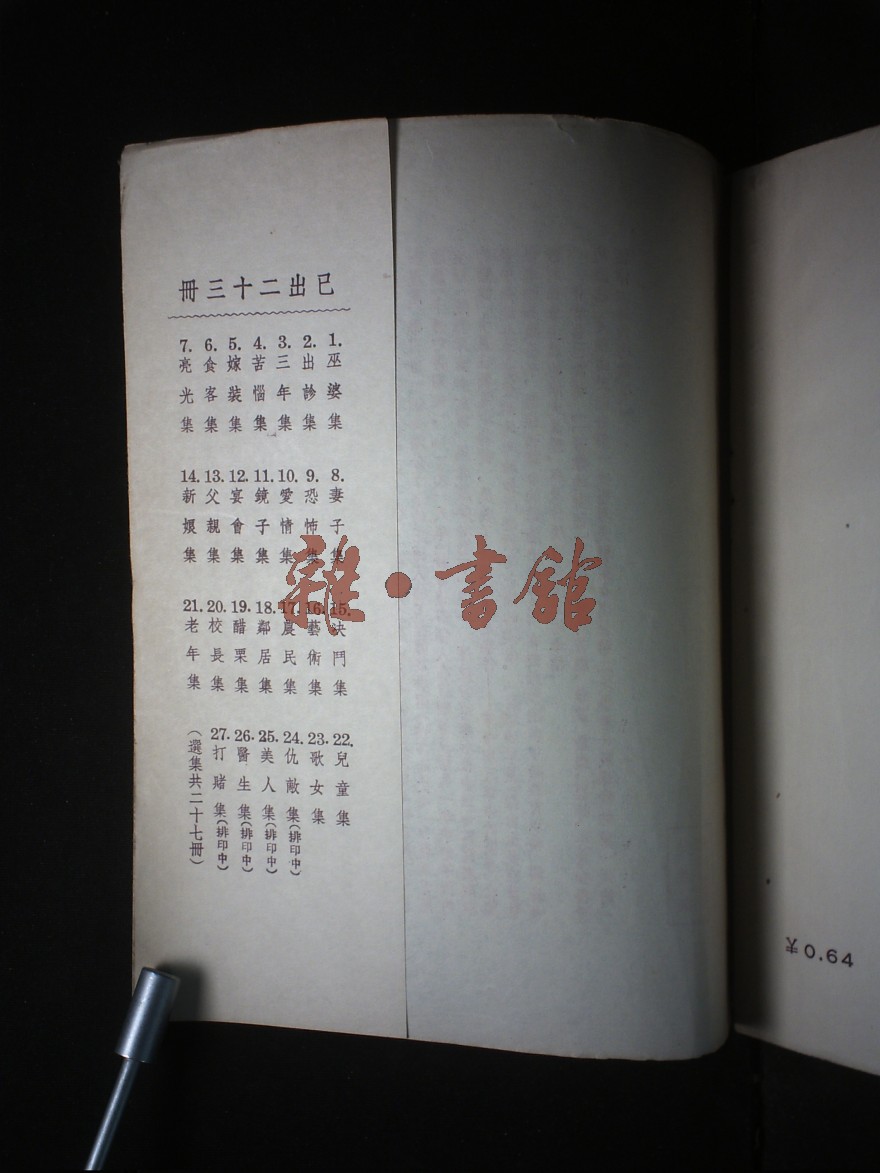 已出二十三冊
1.巫婆集
2.出診集
3.三年集
4.苦惱集
5.嫁裝集
6.食客集
7.亮光集
8.妻子集
9.恐怖集
10.愛情集
11.鏡子集
12.宴會集
13.父親集
14.新娘集
15.決鬥集
16.藝術集
17.農民集
18.鄰居集
19.醋栗集
20.校長集
21.老年集
22.兒童集
23.歌女集
24.仇敵集(排印中)
25.美人集(排印中)
26.醫生集(排印中)
27.打賭集(排印中)
(選集共二十七冊)
雜·書館
¥0.64